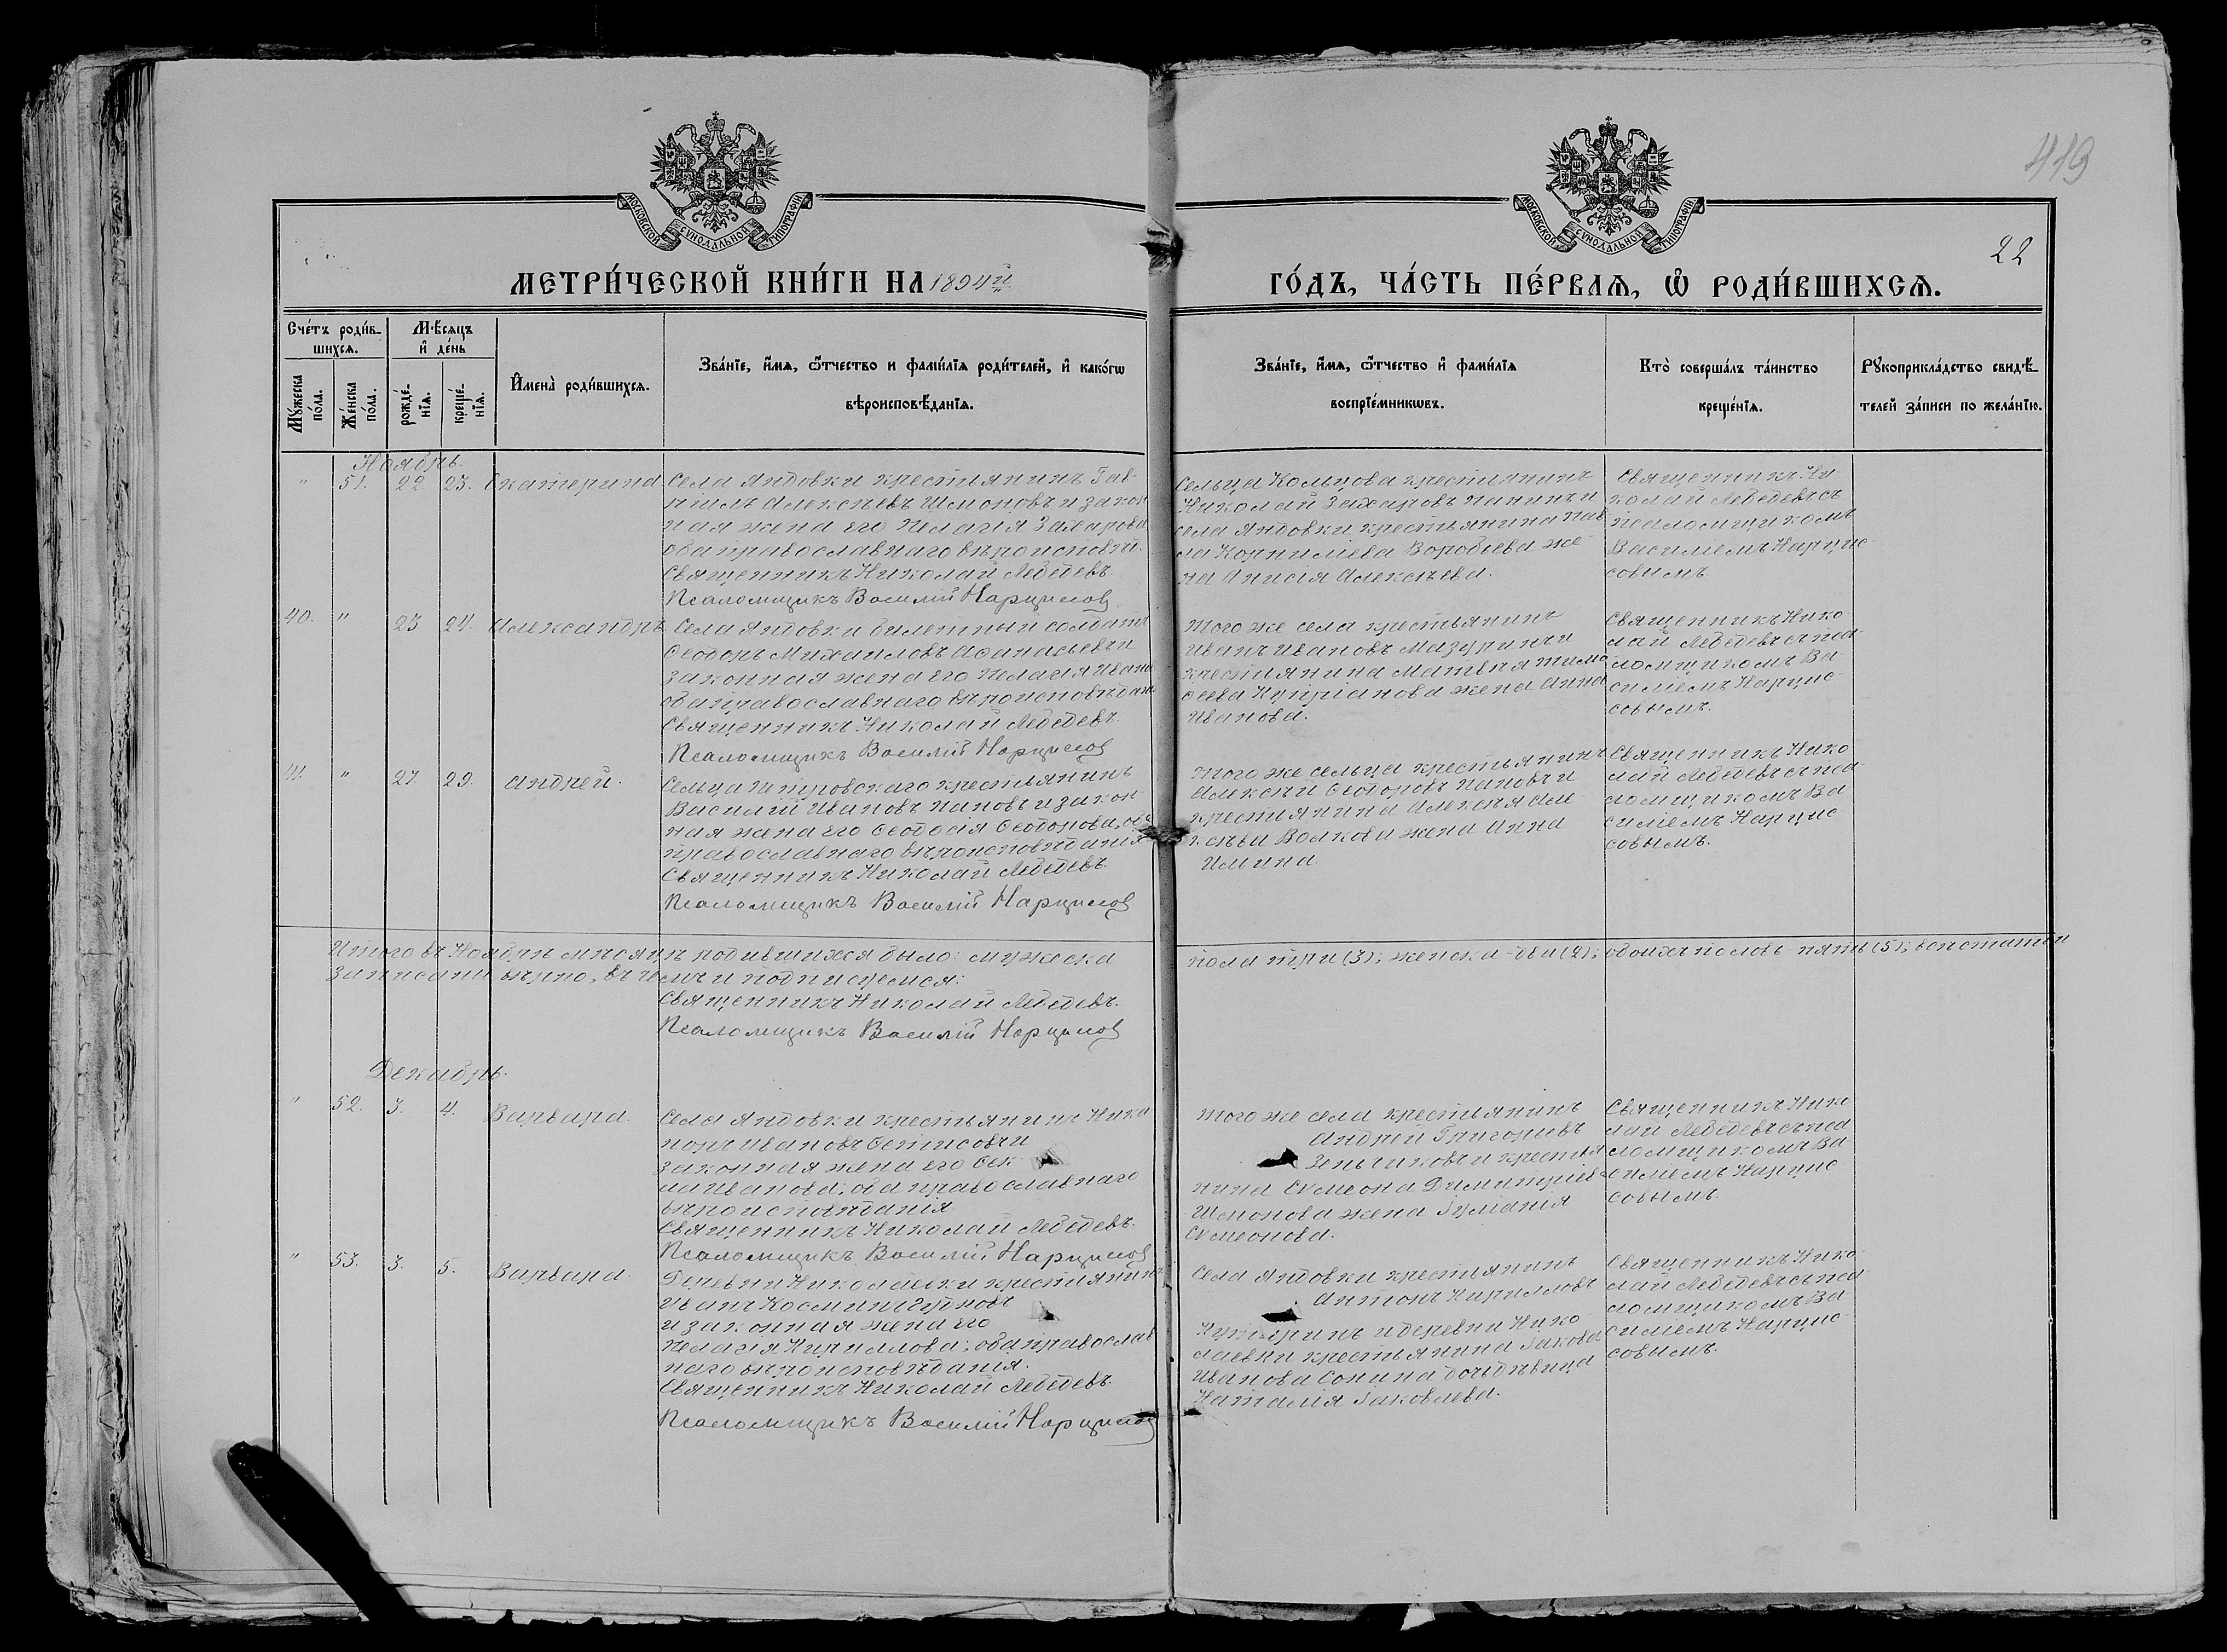 419
22
МОСКОВСКОЙ СѴНОДАЛЬНОЙ ТИПОГРАФІИ
МОСКОВСКОЙ СѴНОДАЛЬНОЙ ТИПОГРАФІИ
МЕТРИ́ЧЕСКОЙ КНИ́ГИ НА 1894й
ГО́ДЪ, ЧА́СТЬ ПЕ́РВАѦ, Ѡ РОДИ́ВШИХСѦ.
Сче́тъ роди́в-
шихсѧ.
Мꙋ́жеска по́ла.
Же́нска по́ла.
Мѣ́сѧцъ
и҆ де́нь
рожде́-
нїѧ.
креще́-
нїѧ.
И҆мена̀ роди́вшихсѧ.
Зва́нїе, и҆́мѧ, ѻ҆́тчество и фами́лїѧ роди́телей, и҆ како́гѡ
вѣроисповѣ́данїѧ.
Зва́нїе, и҆́мѧ, ѻ҆́тчество и҆ фами́лїѧ
воспрїе́мникѡвъ.
Кто̀ соверша́лъ та́инство
креще́нїѧ.
Рꙋкоприкла́дство свидѣ́-
телей за́писи по жела́нїю.
Ноябрь.
" 51. 22 23. Екатерина
Села Яндовки крестьянинъ Гав-
ріилъ Алексѣевъ Шмоновъ и закон
ная жена его Пелагія Захарова
оба православнаго вѣроисповѣд.
Священникъ Николай Лебедевъ.
Псаломщикъ Василій Нарциссов
Сельца Кольцова крестьянинъ
Николай Захаровъ Панинъ и
села Яндовки крестьянина Пав
ла Корниліева Воробьева же-
на Анисія Алексѣева.
Священникъ Ни-
колай Лебедевъ съ
псаломщикомъ
Василіемъ Нарцис-
совымъ.
40. " 23 24. Александръ
Села Яндовки билетный солдатъ
Ѳеодоръ Михаиловъ Аѳанасьевъ и
законная жена его Пелагія Ивано
оба православнаго вѣроисповѣдан
Священникъ Николай Лебедевъ.
Псаломщикъ Василій Нарциссов
Того же села крестьянинъ
Иванъ Ивановъ Мазуринъ и
крестьянина Матвѣя Тимо
ѳеева Купріанова жена Анна
Иванова.
Священникъ Нико
лай Лебедевъ съ пса-
ломщикомъ Ва-
силіемъ Нарцис-
совымъ.
41. " 27. 29. Андрей.
Сельца крестьянинъ
Василій Ивановъ Пановъ и закон
ная жена его Ѳеодосія Ѳеодорова, оба
православнаго вѣроисповѣданія
Священникъ Николай Лебедевъ.
Псаломщикъ Василій Нарциссов
Того же сельца крестьянинъ
Алексѣй Ѳеодоровъ Пановъ и
крестьянина Алексѣя Але-
ксѣева Волкова жена Анна
Ильина.
Священникъ Нико
лай Лебедевъ съ пса-
ломщикомъ Ва
силіемъ Нарцис
совымъ.
Итого въ Ноябрѣ мѣсяцѣ родившихся было: мужеска пола три (3); женска - два (2); обоихъ половъ - пять (5);
записаны вѣрно, въ чемъ и подписуемся:
Священникъ Николай Лебедевъ.
Псаломщикъ Василій Нарциссов
Декабрь.
" 52. 3. 4. Варвара.
Села Яндовки крестьянинъ Ника
норъ Ивановъ и
законная жена его Ѳек
ла Иванова; оба православнаго
вѣроисповѣданія.
Священникъ Николай Лебедевъ.
Псаломщикъ Василій Нарциссов
Того же села крестьянинъ
Андрей Григорьевъ
Зеньчиковъ и крестья
нина Сѵмеона Димитріева
Шмонова жена Іуліанія
Сѵмеонова.
Священникъ Нико
лай Лебедевъ съ пса
ломщикомъ Ва
силіемъ Нарцис
совымъ.
" 53. 3. 5. Варвара.
Деревни Николаевки крестьянинъ
Иванъ Косминъ
и законная жена его
Пелагія Кириллова; оба православ
наго вѣроисповѣданія.
Священникъ Николай Лебедевъ.
Псаломщикъ Василій Нарциссов
Села Яндовки крестьянинъ
Антонъ Кирилловъ
и деревни Нико
лаевки крестьянина Іакова
Иванова Сонина дочь дѣвица
Наталія Іаковлева.
Священникъ Нико-
лай Лебедевъ съ пса
ломщикомъ Ва
силіемъ Нарцис-
совымъ.